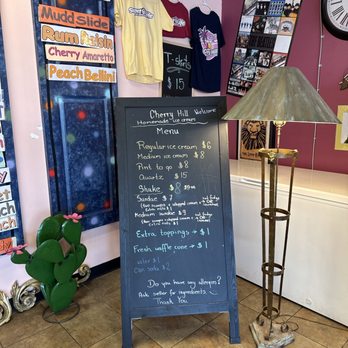 Mudd Slide
Rum Raisin
Cherry Amaretto
Peach Bellini
T-shirts
$15
Cherry Hill Welcome
Homemade Ice cream
Menu
Regular ice cream $6
Medium ice cream $8
Pint to go $8
Quartz $15
Shake $8
Sundae $7
Medium Sundae $9
Extra toppings → $1
Fresh waffle cone → $1
Water $1
Can soda $2
Do you have any allergies?
Ask seller for ingredients
Thank You